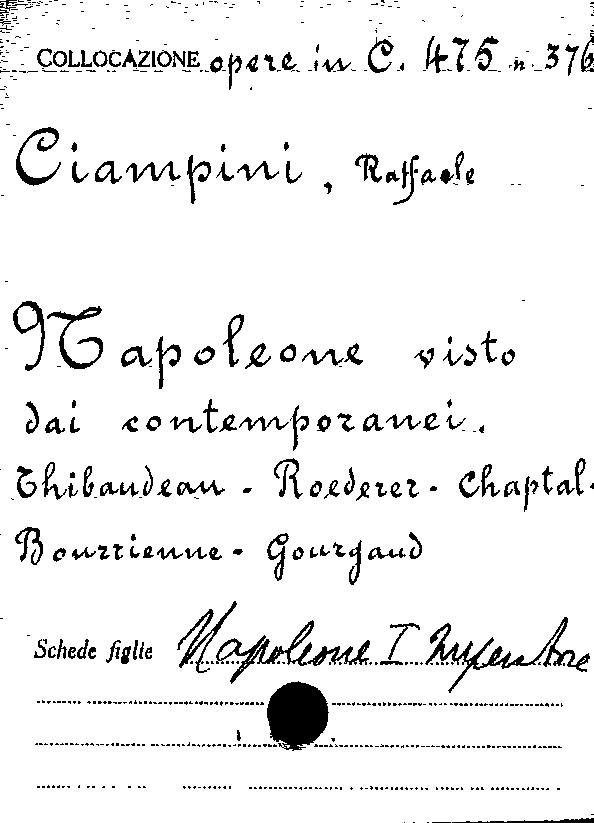 COLLOCAZIONE opere in C. 475 n. 376
Ciampini, Raffaele
Napoleone visto
dai contemporanei.
Thibaudeau - Roederer - Chaptal -
Bourrienne - Gourgaud
Schede figlie Napoleone I Imperatore